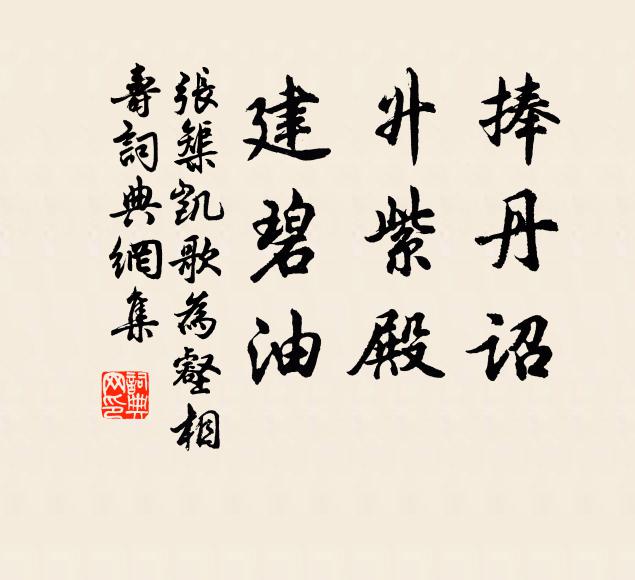 捧丹詔
升紫殿
建碧油
張榘凱歌為壑相
壽詞典網集
詞典
网印